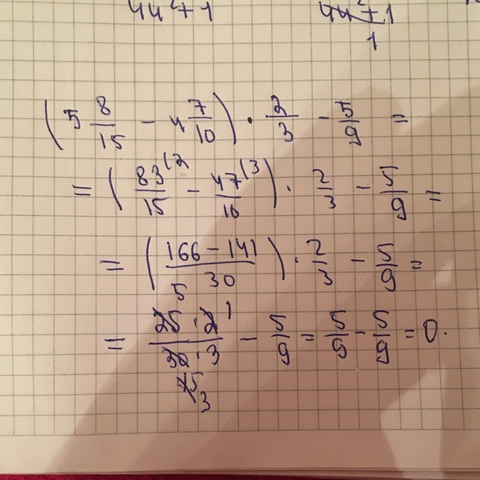 4u²+1 4u²+1
1
(5 8/15 - 4 7/10) · 2/3 - 5/9 =
= (83/15 (2 - 47/10 (3) · 2/3 - 5/9 =
= ((166 - 141)/30) · 2/3 - 5/9 =
= (25 5 · 2 1)/(30 15 3 · 3) - 5/9 = 5/9 - 5/9 = 0.